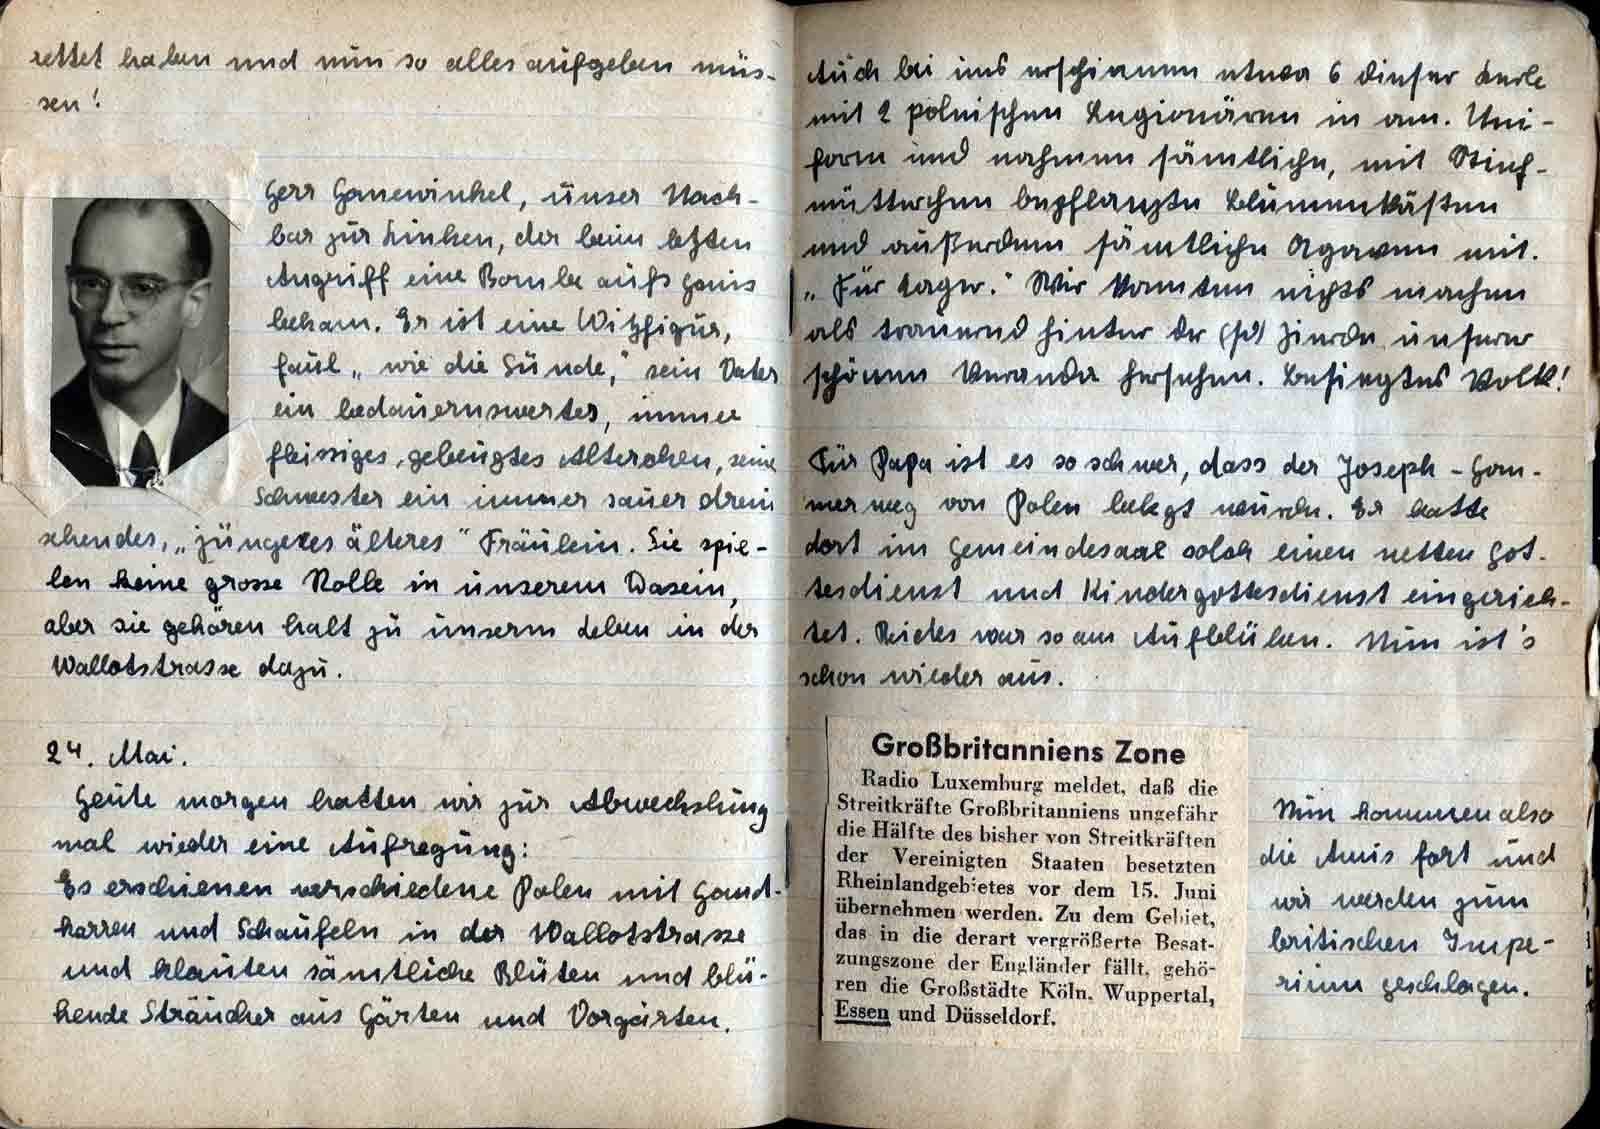 rettet haben und nun so alles aufgeben müs-
sen!
Herr Hanewinkel, unser Nach-
bar zur Linken, der beim letzten
Angriff eine Bombe aufs Haus
bekam. Er ist eine Witzfigur,
faul „wie die Sünde," sein Vater
ein bedauernswertes, immer
fleissiges, gebeugtes Alterchen, seine
Schwester ein immer sauer drein
sehendes, „jüngeres älteres" Fräulein. Sie spie-
len keine grosse Rolle in unserem Dasein,
aber sie gehören halt zu unserm Leben in der
Wallotstrasse dazu.
24. Mai.
Heute morgen hatten wir zur Abwechslung
mal wieder eine Aufregung:
Es erschienen verschiedene Polen mit Hand-
karren und Schaufeln in der Wallotstrasse
und klauten sämtliche Blüten und blü-
hende Sträucher aus Gärten und Vorgärten.
Auch bei uns erschienen etwa 6 dieser Kerle
mit 2 polnischen Legionären in am. Uni-
form und nahmen sämtliche, mit Stief-
mütterchen bepflanzte Blumenkästen
und außerdem sämtliche Agaven mit.
„Für Lager." Wir konnten nichts machen
als trauernd hinter der Zierde unserer
schönen Veranda hersehen. Besiegtes Volk!
Für Papa ist es so schwer, dass der Joseph-Hom-
mer weg von Polen belegt wurde. Er hatte
dort im Gemeindesaal solch einen netten Got-
tesdienst und Kindergottesdienst eingerich-
tet. Beides war so am Aufblühen. Nun ist's
schon wieder aus.
Großbritanniens Zone
Radio Luxemburg meldet, daß die
Streitkräfte Großbritanniens ungefähr
die Hälfte des bisher von Streitkräften
der Vereinigten Staaten besetzten
Rheinlandgebietes vor dem 15. Juni
übernehmen werden. Zu dem Gebiet,
das in die derart vergrößerte Besat-
zungszone der Engländer fällt, gehö-
ren die Großstädte Köln, Wuppertal,
Essen und Düsseldorf.
Nun kommen also
die Amis fort und
wir werden zum
britischen Impe-
rium geschlagen.